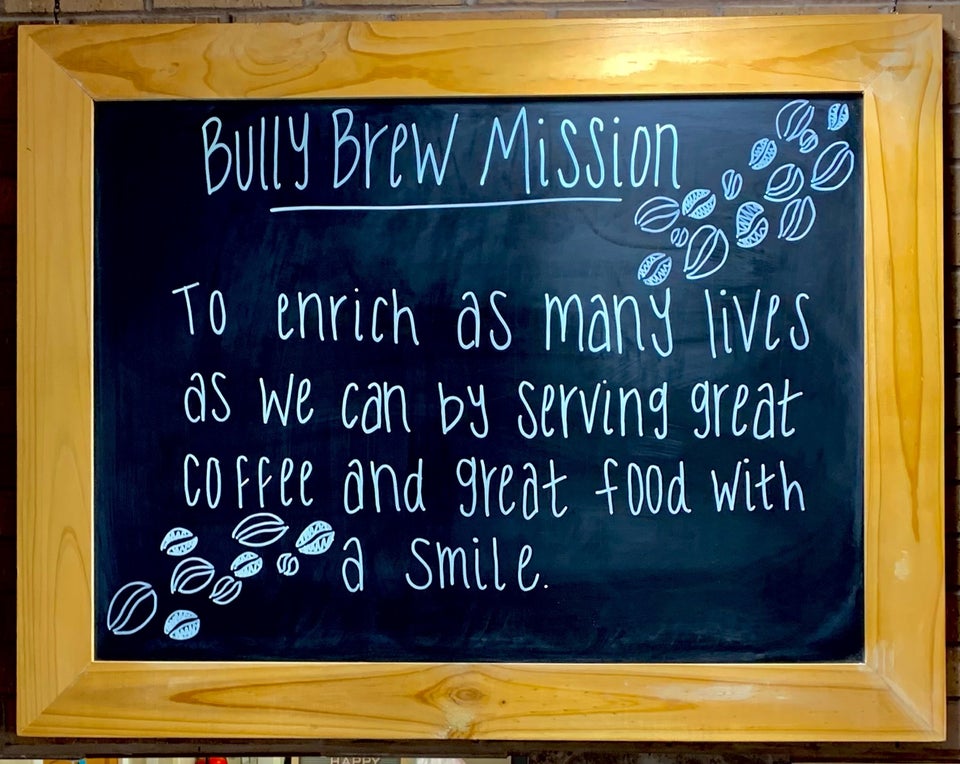 Bully Brew Mission
To enrich as many lives
as we can by serving great
coffee and great food with
a smile.
HAPPY